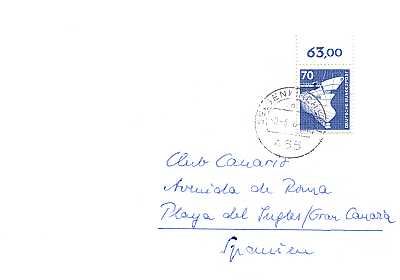 63,00
70
DEUTSCHE BUNDESPOST
GELSENKIRCHEN
Club Canario
Avenida de Roma
Playa del Ingles/Gran Canaria
Spanien